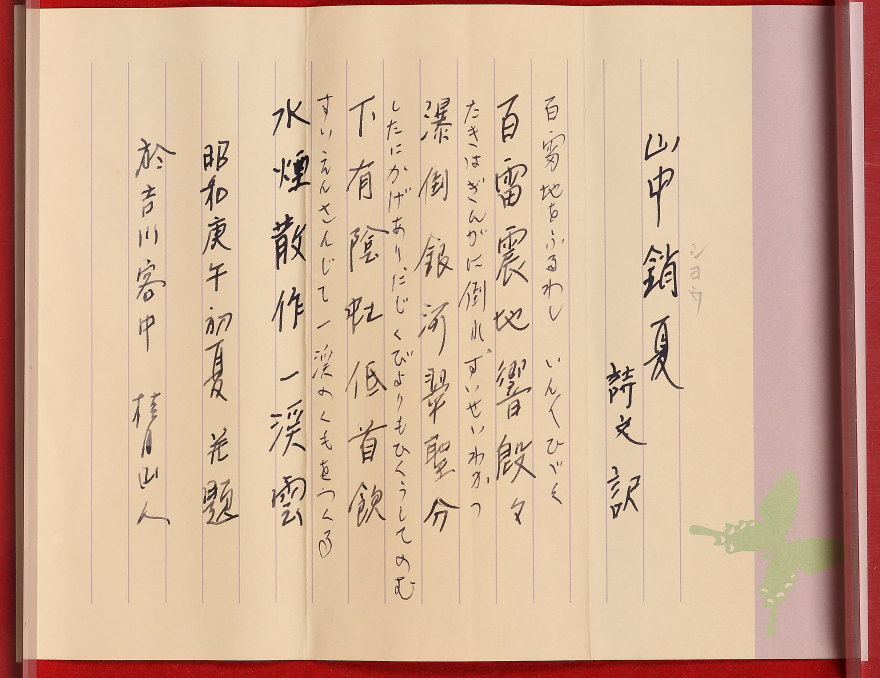 山中銷夏
ショウ
詩文訳
百雷地をふるわし いんくひゞく
百雷震地響殷々
たきはぎんがに倒れ すいせいわかつ
瀑倒銀河翠聖分
したにかげあり にじくびよりもひくうしてのむ
下有陰虹低首飲
すいえんさんじて一渓のくもをつくる
水煙散作一渓雲
昭和庚午初夏 題
於吉川客中 桂月山人